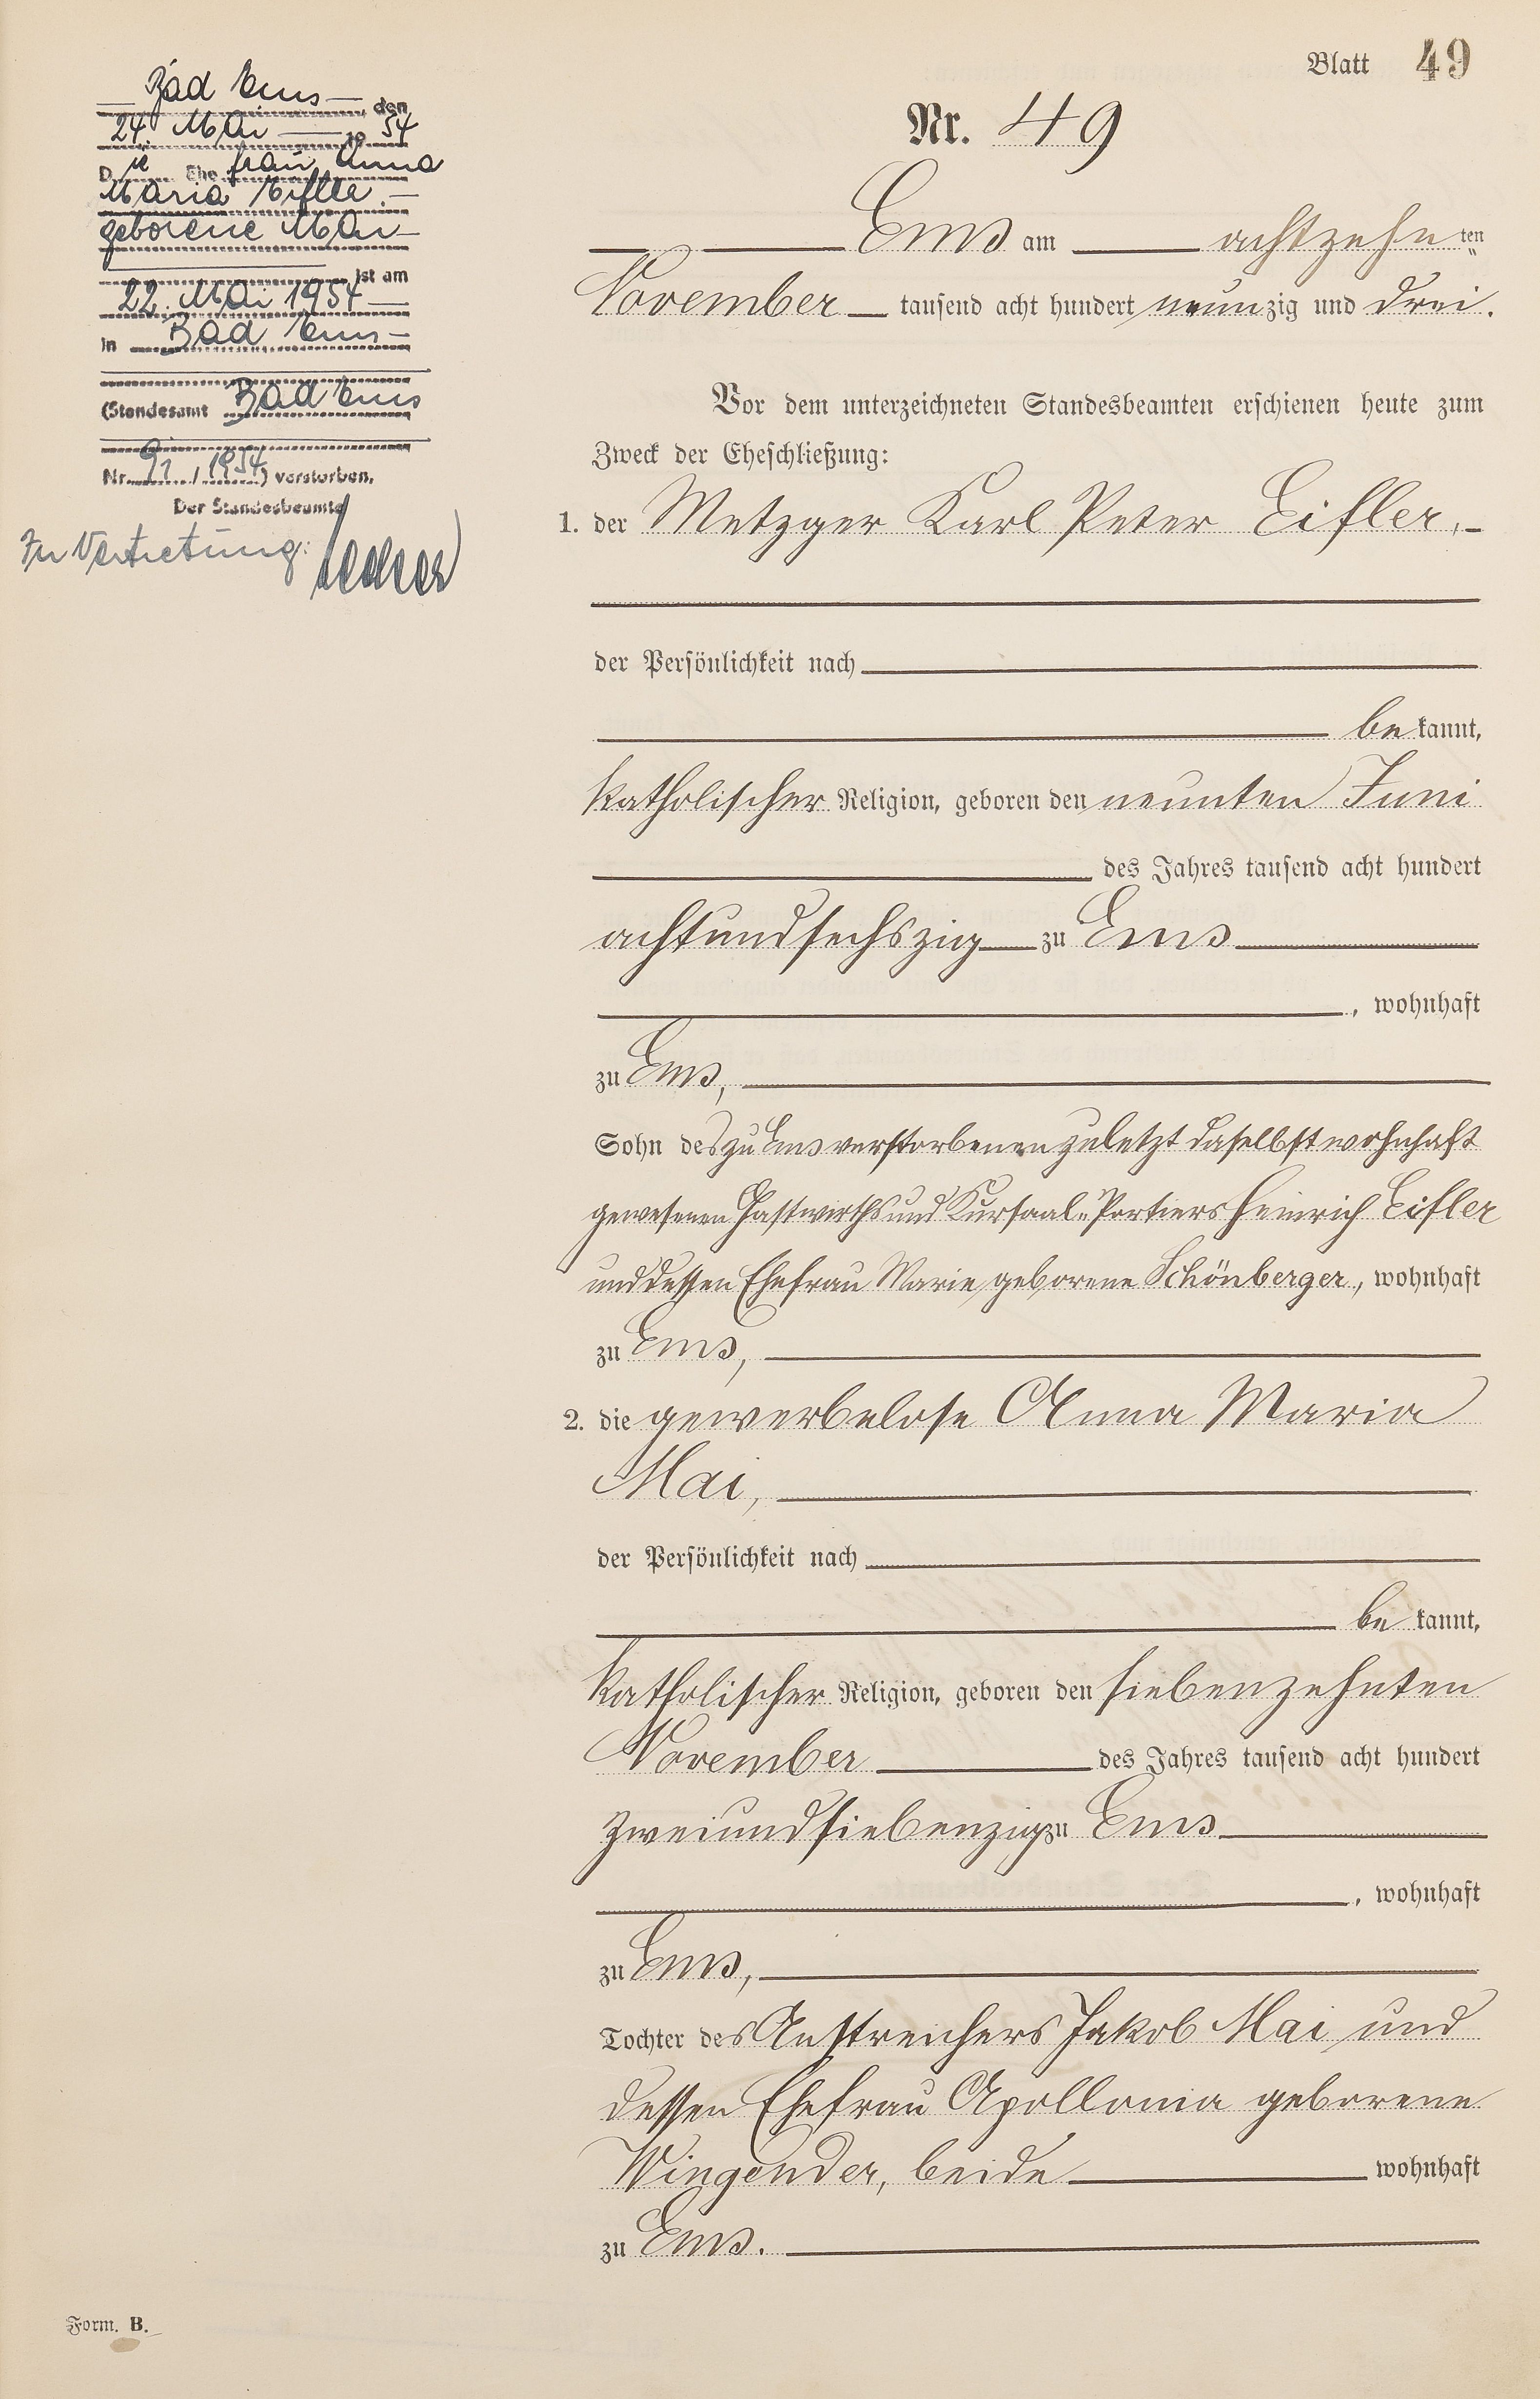 Blatt 49
Nr. 49
Bad Ems, den
24. Mai 1954
Die Ehefrau Anna
Maria Eifler
geborene Mai
ist am
22. Mai 1954
in Bad Ems
(Standesamt Bad Ems
Nr. 91/1954) verstorben.
Der Standesbeamte
In Vertretung:
Ems am achtzehnten
November tausend acht hundert neunzig und drei.
Vor dem unterzeichneten Standesbeamten erschienen heute zum
Zweck der Eheschließung:
1. der Metzger Karl Peter Eifler,
der Persönlichkeit nach
bekannt,
katholischer Religion, geboren den neunten Juni
des Jahres tausend acht hundert
achtundsechszig zu Ems
, wohnhaft
zu Ems,
Sohn des zu Ems verstorbenen zuletzt daselbst wohnhaft
gewesenen Gastwirths und Kursaal-Portiers Heinrich Eifler
und dessen Ehefrau Marie geborene Schönberger, wohnhaft
zu Ems,
2. die gewerbelose Anna Maria
Mai,
der Persönlichkeit nach
bekannt,
katholischer Religion, geboren den siebenzehnten
November des Jahres tausend acht hundert
zweiundsiebenzig zu Ems
, wohnhaft
zu Ems,
Tochter des Anstreichers Jakob Mai und
dessen Ehefrau Apollonia geborene
Wingender, beide wohnhaft
zu Ems.
Form. B.